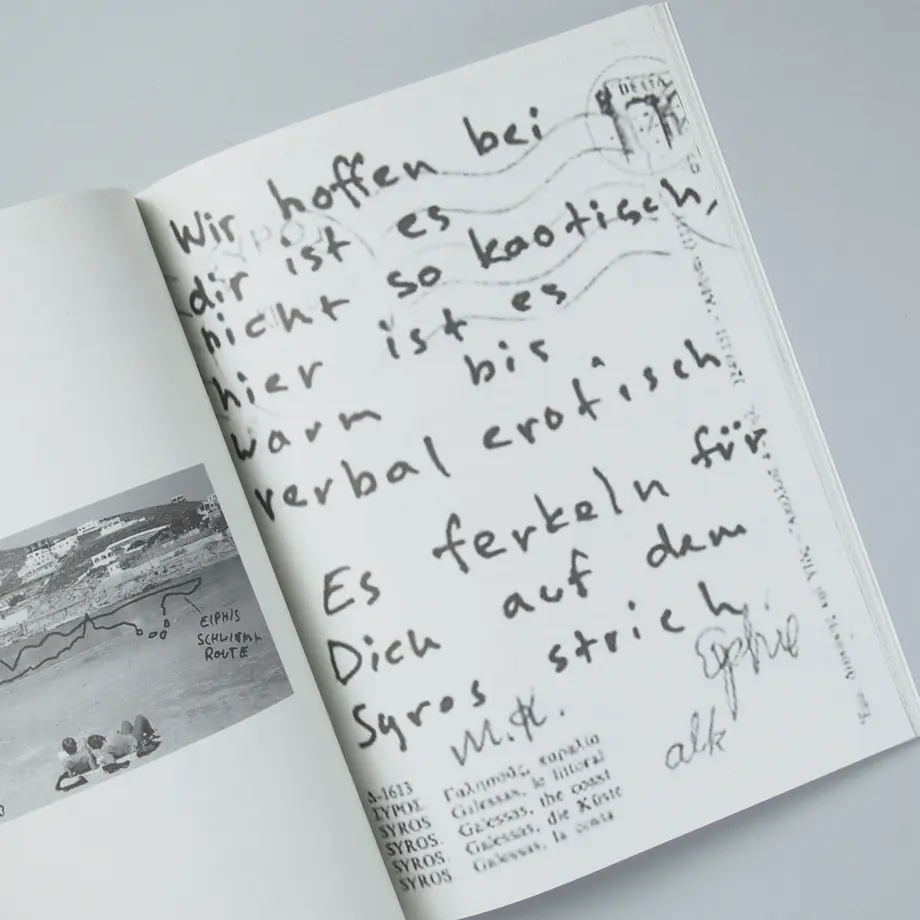 EIPHIS
SCHWIMM
ROUTE
DELTA
Wir hoffen bei
dir ist es
nicht so kaotisch,
hier ist es
warm bis
verbal erotisch
Es ferkeln für
Dich auf dem
Syros strich
M.K.
alk
Δ-1613
ΣΥΡΟΣ Γαλησσάς, παραλία
SYROS Galessas, le littoral
SYROS. Galessas, the coast
SYROS. Galessas, die Küste
SYROS Galessas, la costa